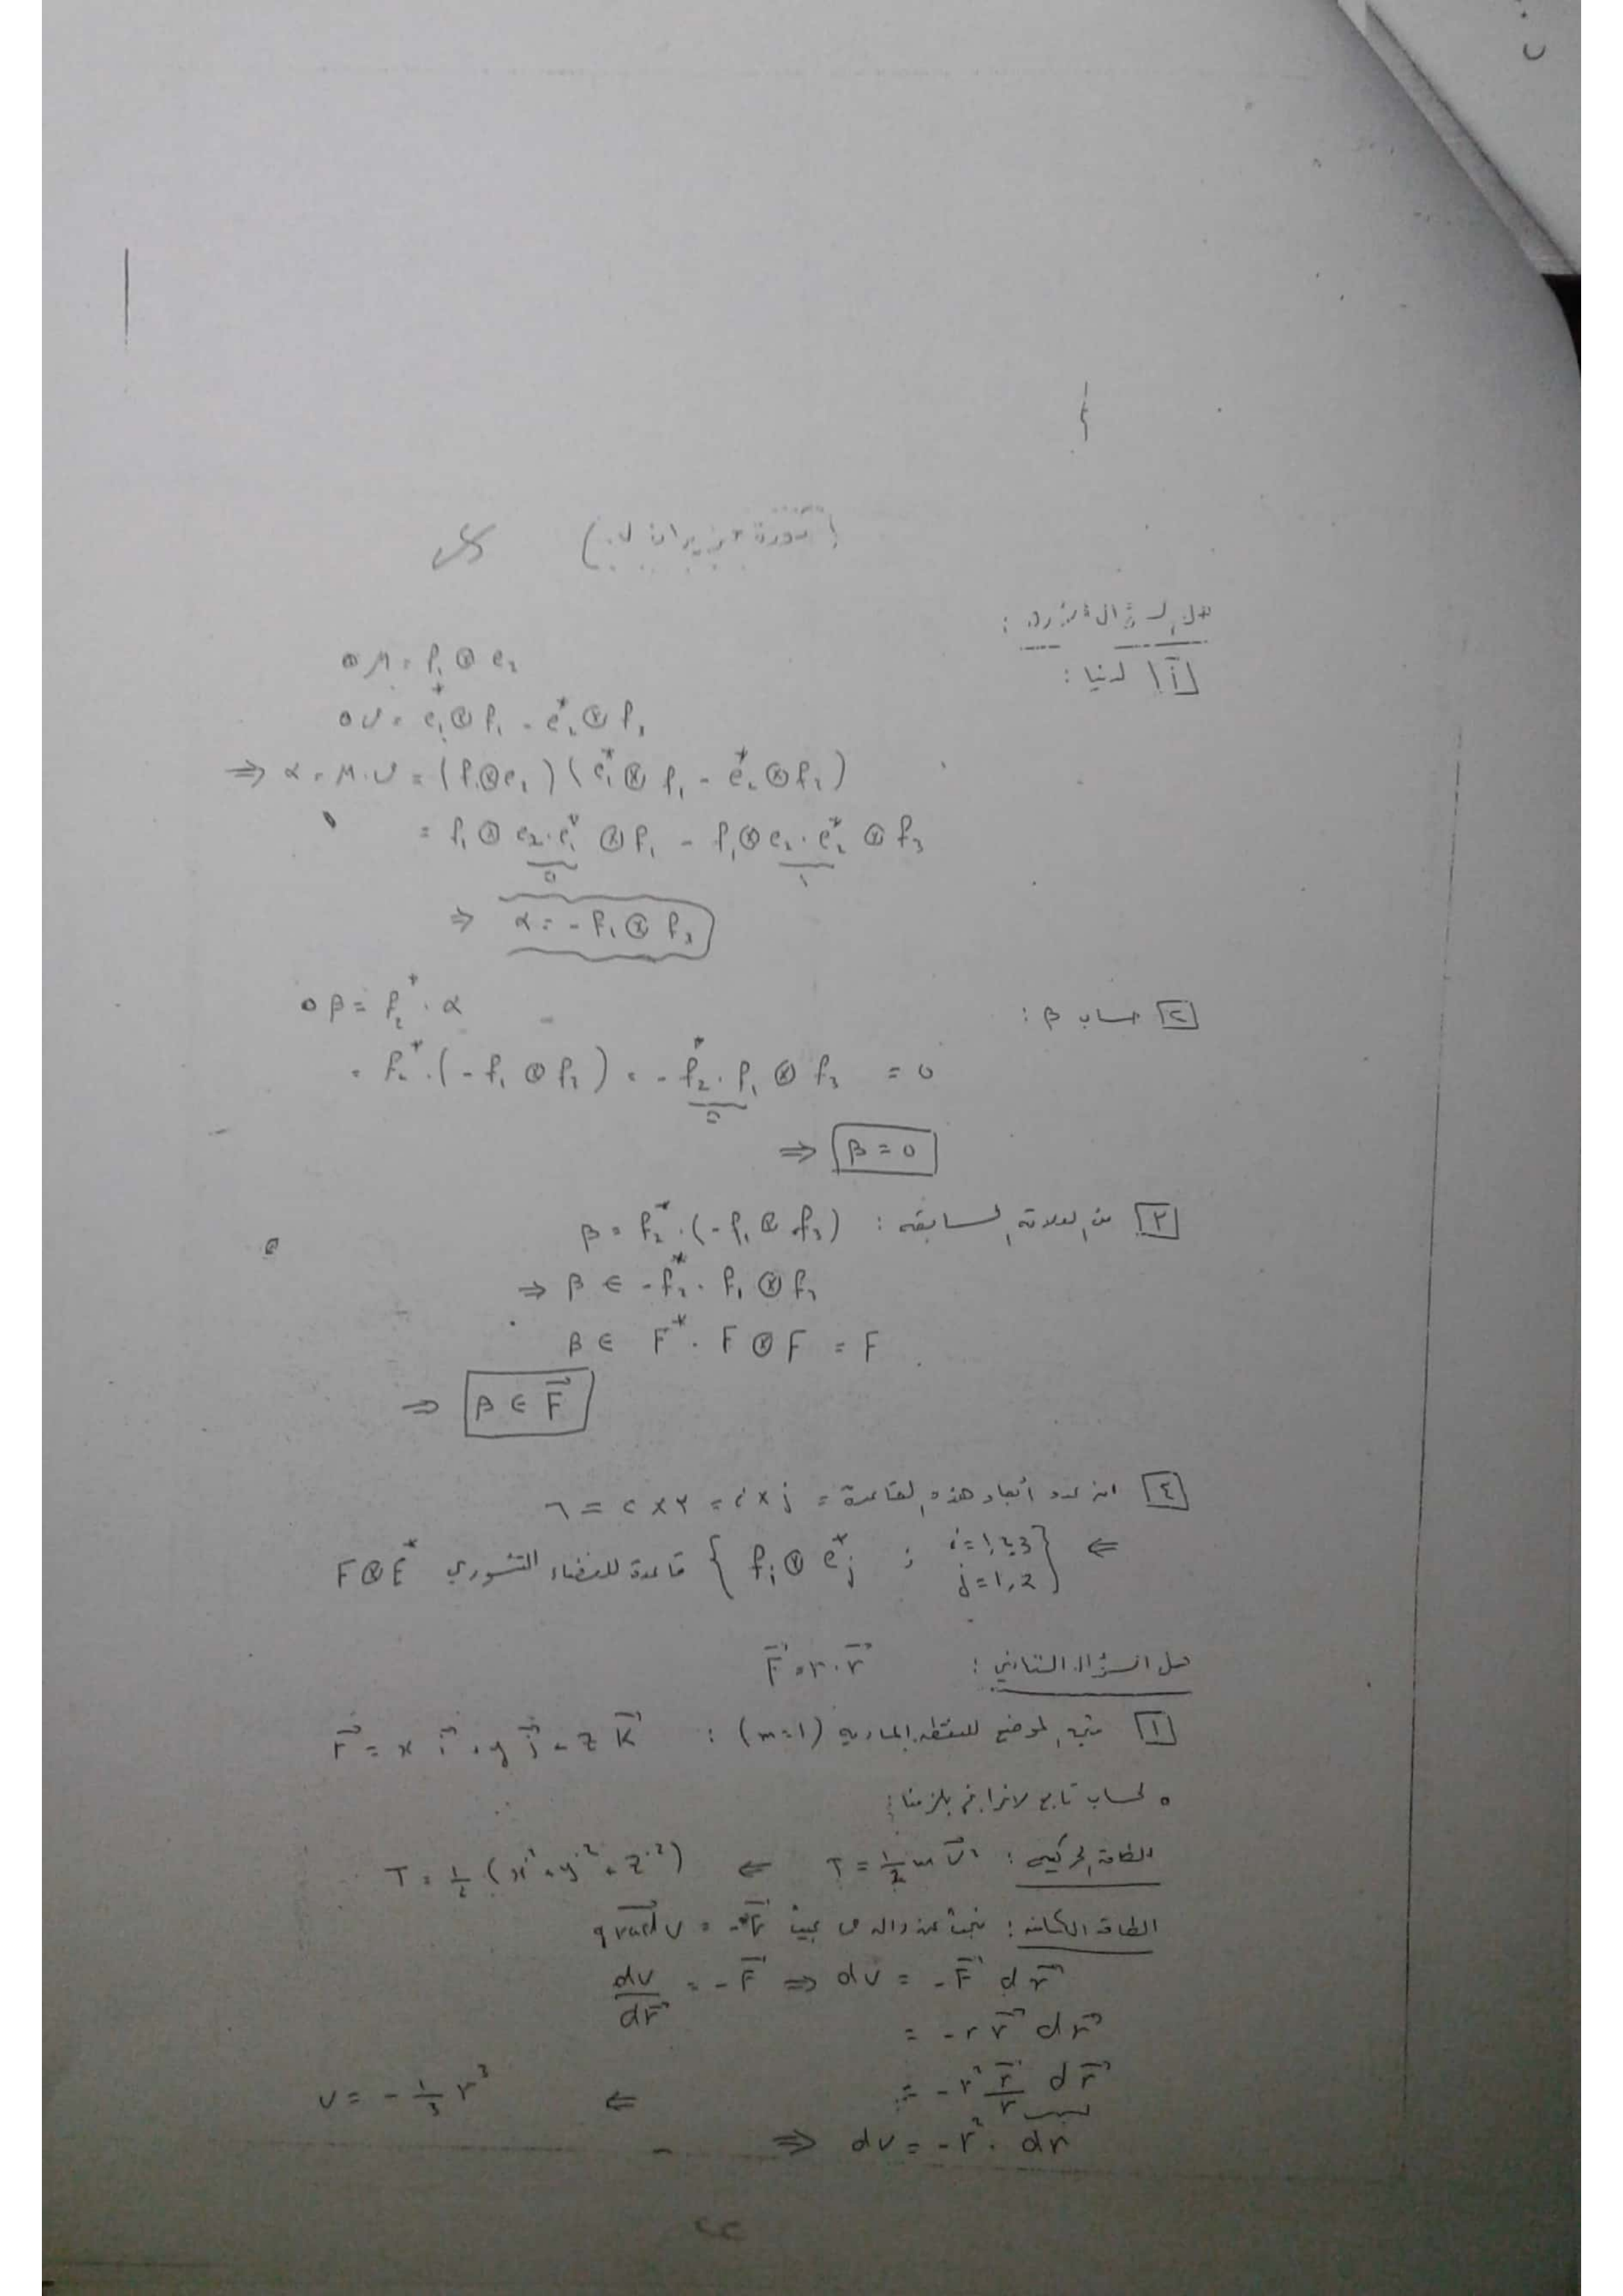 حل السؤال الأول :
[١] لدينا :
∘ μ = f₁ ⊗ e₂
∘ ν = e₁* ⊗ f₁ - e₂* ⊗ f₃
⇒ α = μ.ν = (f₁⊗e₂)(e₁* ⊗ f₁ - e₂* ⊗ f₃)
= f₁ ⊗ e₂.e₁* ⊗ f₁ - f₁⊗e₂.e₂* ⊗ f₃
0 1
⇒ α = - f₁ ⊗ f₃
[٢] حساب β :
∘ β = f₂* . α
= f₂* . (- f₁ ⊗ f₃) = - f₂* . f₁ ⊗ f₃ = 0
0
⇒ β = 0
[٣] من العلاقة السابقة : β = f₂* . (- f₁ ⊗ f₃)
⇒ β ∈ - f₂* . f₁ ⊗ f₃
β ∈ F* . F ⊗ F = F
⇒ β ∈ F⃗
[٤] ان عدد أبعاد هذه القاعدة = i × j = ٣ × ٢ = ٦
⇐ { fᵢ ⊗ eⱼ* ; i=1,2,3 j=1,2 } قاعدة للفضاء التنسوري F⊗E*
حل السؤال الثاني : F⃗ = r . r⃗
[١] متجه الموضع للنقطة المادية (m=1) : r⃗ = x i⃗ + y j⃗ + z k⃗
∘ لحساب تابع لاغرانج يلزمنا :
الطاقة الحركية : T = ½ m v⃗² ⇐ T = ½ (ẋ² + ẏ² + ż²)
الطاقة الكامنة : نبحث عن دالة بحيث grad v = - F⃗
dv/dr⃗ = - F⃗ ⇒ dv = - F⃗ dr⃗
= - r r⃗ dr⃗
= - r² r⃗/r dr⃗
⇒ dv = - r² . dr ⇐ v = - ⅓ r³